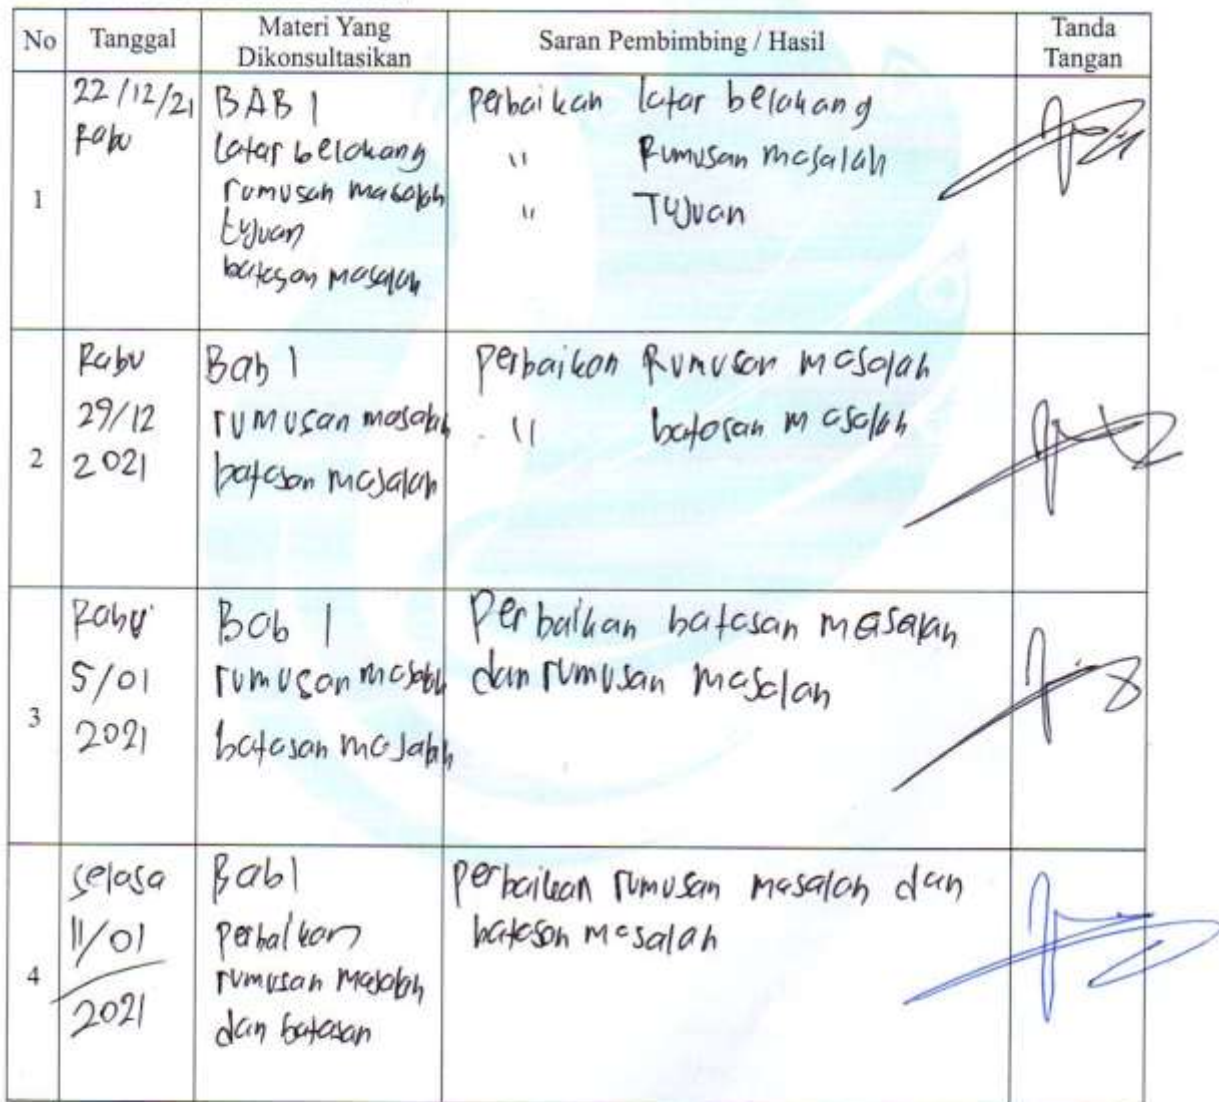 No Tanggal Materi Yang Dikonsultasikan Saran Pembimbing / Hasil Tanda Tangan
1
22/12/21
Rabu
BAB 1
Latar belakang
rumusan masalah
tujuan
batasan masalah
perbaikan latar belakang
" Rumusan masalah
" Tujuan
2
Rabu
29/12
2021
Bab 1
rumusan masalah
batasan masalah
perbaikan Rumusan masalah
" batasan masalah
3
Rabu
5/01
2021
Bab 1
rumusan masalah
batasan masalah
Perbaikan batasan masalah
dan rumusan masalah
4
Selasa
11/01
2021
Bab 1
perbaikan
rumusan masalah
dan batasan
perbaikan rumusan masalah dan
batasan masalah